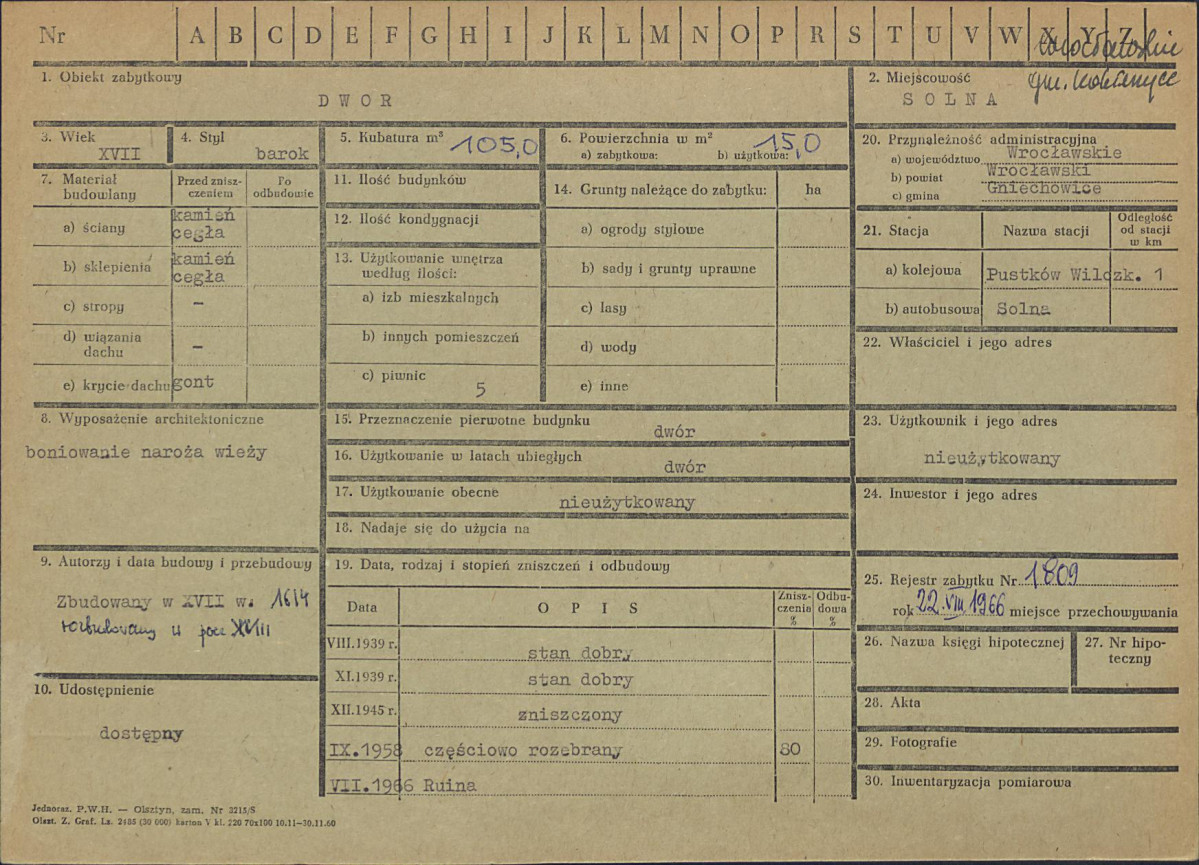 Nr A B C D E F G H I J K L M N O P R S T U V W X Y Z
wrocławskie
gm. Kobierzyce
1. Obiekt zabytkowy
DWOR
2. Miejscowość
SOLNA
3. Wiek
XVII
4. Styl
barok
5. Kubatura m³ 105,0
6. Powierzchnia w m² 15,0
a) zabytkowa: b) użytkowa:
7. Materiał budowlany
Przed zniszczeniem
Po odbudowie
a) ściany
kamień
cegła
b) sklepienia
kamień
cegła
c) stropy –
d) wiązania dachu –
e) krycie dachu gont
8. Wyposażenie architektoniczne
boniowanie naroża wieży
9. Autorzy i data budowy i przebudowy
Zbudowany w XVII w. 1614
rozbudowany u pocz XVIII
10. Udostępnienie
dostępny
11. Ilość budynków
12. Ilość kondygnacji
13. Użytkowanie wnętrza
według ilości:
a) izb mieszkalnych
b) innych pomieszczeń
c) piwnic
5
14. Grunty należące do zabytku: ha
a) ogrody stylowe
b) sady i grunty uprawne
c) lasy
d) wody
e) inne
15. Przeznaczenie pierwotne budynku
dwór
16. Użytkowanie w latach ubiegłych
dwór
17. Użytkowanie obecne
nieużytkowany
18. Nadaje się do użycia na
19. Data, rodzaj i stopień zniszczeń i odbudowy
Data OPIS Zniszczenia % Odbudowa %
VIII.1939 r. stan dobry
XI.1939 r. stan dobry
XII.1945 r. zniszczony
IX.1958 częściowo rozebrany 80
VII.1966 Ruina
20. Przynależność administracyjna
a) województwo Wrocławskie
b) powiat Wrocławski
c) gmina Gniechowice
21. Stacja Nazwa stacji Odległość od stacji w km
a) kolejowa Pustków Wilczk. 1
b) autobusowa Solna
22. Właściciel i jego adres
23. Użytkownik i jego adres
nieużytkowany
24. Inwestor i jego adres
25. Rejestr zabytku Nr 1809
rok 22.VIII.1966 miejsce przechowywania
26. Nazwa księgi hipotecznej
27. Nr hipoteczny
28. Akta
29. Fotografie
30. Inwentaryzacja pomiarowa
Jednoraz. P.W.H. — Olsztyn, zam. Nr 3215/S
Olszt. Z. Graf. Lz. 2485 (30 000) karton V kl. 220 70x100 10.11–30.11.60